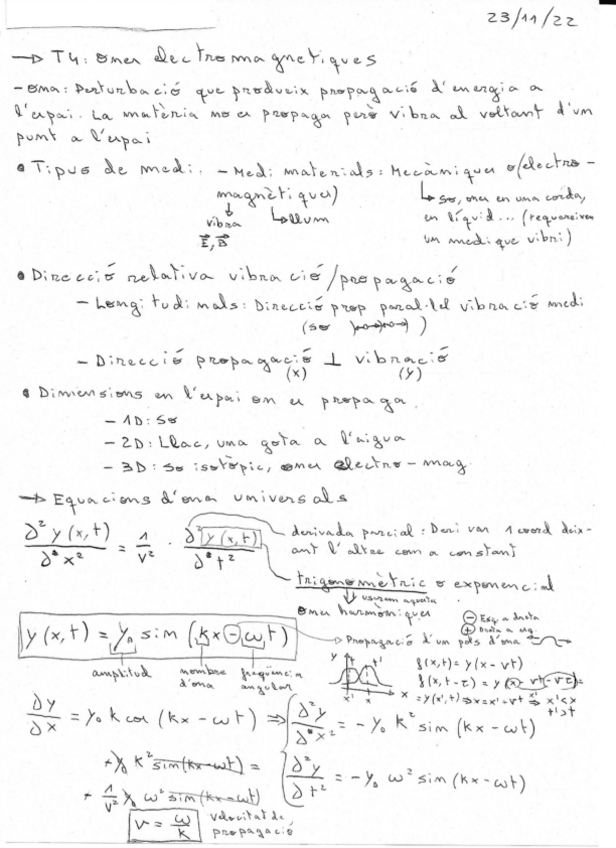 23/11/22
→ T4: ones electromagnètiques
- Ona: Perturbació que produeix propagació d'energia a
l'espai. La matèria no es propaga però vibra al voltant d'un
punt a l'espai
• Tipus de medi: - Medi materials: Mecàniques o (electro-
magnètiques)
↳ so, ones en una corda,
en líquid... (requereixen
un medi que vibri)
↓ vibra
↳ llum
E⃗, B⃗
• Direcció relativa vibració/propagació
- Longitudinals: Direcció prop paral·lel vibració medi
(so )
- Direcció propagació ⊥ vibració
(x) (y)
• Dimensions en l'espai on es propaga.
- 1D: So
- 2D: Llac, una gota a l'aigua
- 3D: So isotòpic, ones electro-mag.
→ Equacions d'ona universals
∂² y(x,t) / ∂ x² = 1 / v² · ∂² y(x,t) / ∂ t²
derivada parcial: Derivar 1 coord deix-
ant l'altre com a constant
trigonomètric o exponencial
↓ usarem aquesta
ones harmòniques
⊖ Esq a dreta
⊕ Dreta a esq
y(x,t) = y₀ sin (kx - ωt)
→ Propagació d'un pols d'ona
amplitud nombre d'ona freqüència angular
y t t' x' x x
f(x,t) = y(x - vt)
f(x,t-τ) = y(x - vt - vτ) =
= y(x',t) ⇒ x = x' - vt ⇒ x' < x
t' > t
∂y / ∂x = y₀ k cos (kx - ωt) ⇒ { ∂²y / ∂x² = - y₀ k² sin (kx - ωt)
+ y₀ k² sin(kx-ωt) =
∂²y / ∂t² = - y₀ ω² sin (kx - ωt)
+ 1 / v² y₀ ω² sin(kx-ωt)
v = ω / k velocitat de
propagació